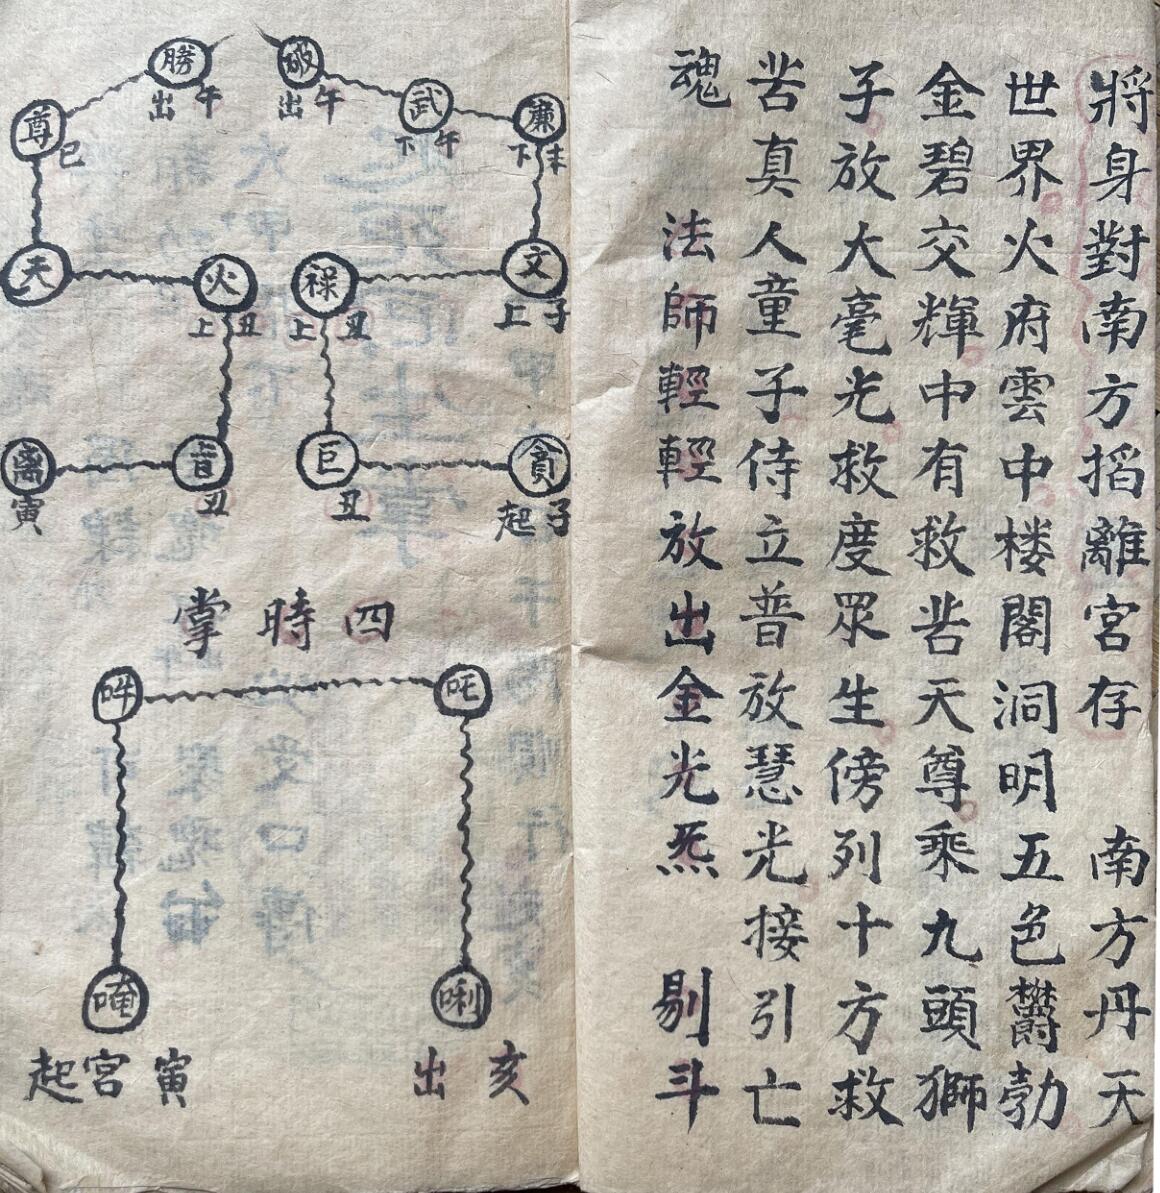 將身對南方搯離宮存　南方丹天
世界火府雲中楼閣洞明五色欝勃
金碧交輝中有救苦天尊乘九頭獅
子放大毫光救度眾生傍列十方救
苦真人童子侍立普放慧光接引亡
魂　法師輕輕放出金光炁　剔斗
破 武 廉
出午 下午 下未
祿 文
上丑 上子
巨 貪
丑 起子
勝 尊
出午 巳
天 火
上丑
丑
寅
四時掌
吽 吒
唵 唎
寅宮起
亥出